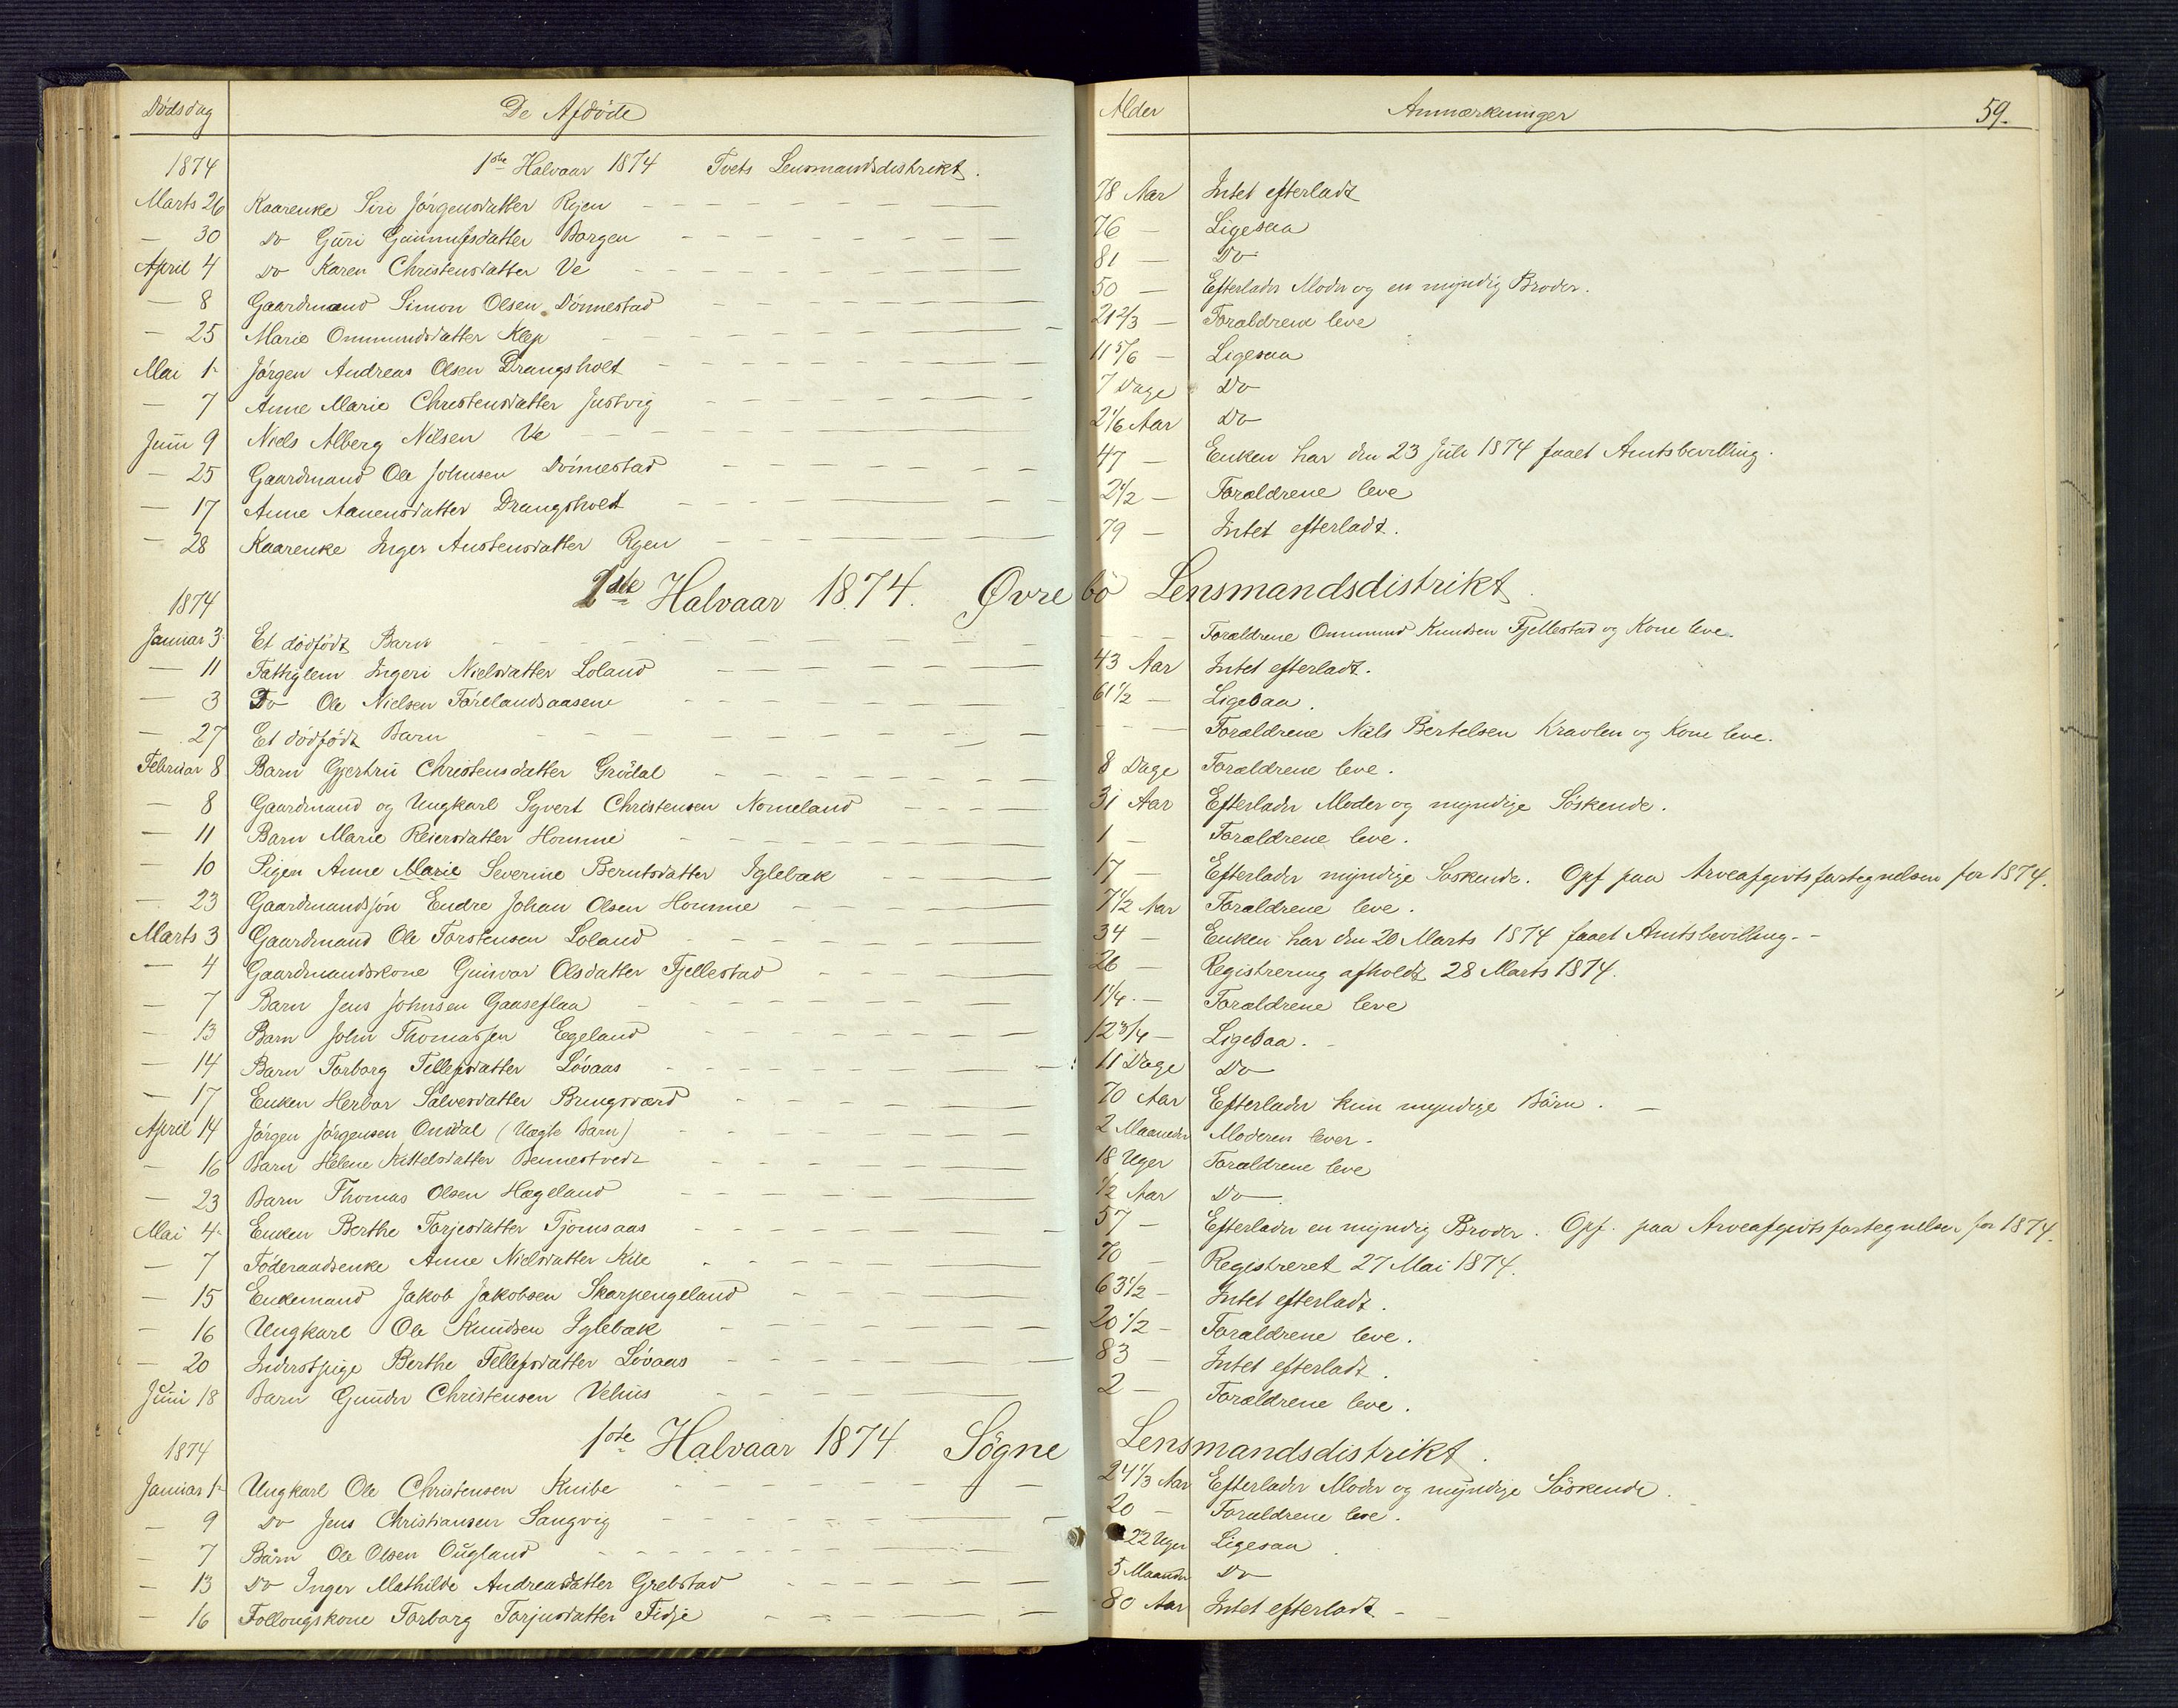 Dødsdag De Afdøde Alder Anmærkninger 59.
1874 1ste Halvaar 1874 Tvets Lensmandsdistrikt.
Marts 26 Kaarenke Siri Jørgensdatter Ryen 78 Aar Intet efterladt
— 30 Do Guri Gunnulfsdatter Borgen 76 — Ligesaa
April 4 Do Karen Christensdatter Ve 81 — Do
— 8 Gaardmand Simon Olsen Dønnestad 50 — Efterlader Moder og en myndig Broder.
— 25 Marie Ommundsdatter Klep 21 2/3 — Forældrene leve
Mai 1 Jørgen Andreas Olsen Drangsholt 11 5/6 — Ligesaa
— 7 Anne Marie Christensdatter Justvig 7 Dage Do
Juni 9 Niels Alberg Nilsen Ve 2 1/6 Aar Do
— 25 Gaardmand Ole Johnsen Dønnestad 47 — Enken har den 23 Juli 1874 faaet Amtsbevilling.
— 17 Anne Aanensdatter Drangsholt 2 1/2 — Forældrene leve
— 28 Kaarenke Inger Austensdatter Ryen 79 — Intet efterladt.
1874 1ste Halvaar 1874. Øvrebø Lensmandsdistrikt.
Januar 3 Et dødfødt Barn — — — Forældrene Ommund Knudsen Fjellestad og Kone leve.
— 11 Fattiglem Ingeri Nielsdatter Loland 43 Aar Intet efterladt.
— 3 Do Ole Nielsen Førelandsaasene 61 1/2 — Ligesaa.
— 27 Et dødfødt Barn — — — Forældrene Niels Bertelsen Kravlen og Kone leve.
Februar 8 Barn Gjertru Christensdatter Grødal 8 Dage Forældrene leve.
— 8 Gaardmand og Ungkarl Syvert Christensen Nomeland 31 Aar Efterlader Moder og myndige Søskende.
— 11 Barn Marie Reiersdatter Homme 1 — Forældrene leve.
— 10 Pigen Anne Marie Severine Berntsdatter Iglebæk 17 — Efterlader myndige Søskende. Opf paa Arveafgiftsfortegnelsen for 1874.
— 23 Gaardmandsøn Endre Johan Olsen Homme 7 1/2 Aar Forældrene leve.
Marts 3 Gaardmand Ole Torstensen Loland 34 — Enken har den 20 Marts 1874 faaet Amtsbevilling.
— 4 Gaardmandskone Gunvor Olsdatter Fjellestad 26 — Registrering afholdt 28 Marts 1874.
— 7 Barn Jens Johnsen Gaaseflaa 1 1/4 — Forældrene leve
— 13 Barn John Thomassen Egeland 12 3/4 — Ligesaa.
— 14 Barn Torborg Tellefsdatter Løvaas 11 Dage Do
— 17 Enken Herbor Salvesdatter Bringsværd 70 Aar Efterlader kun myndige Børn.
April 14 Jørgen Jørgensen Omdal (Uægte Barn) 2 Maaneder Moderen lever.
— 16 Barn Helene Kittelsdatter Bennestvedt 18 Uger Forældrene leve
— 23 Barn Thomas Olsen Hægeland 1/2 Aar Do
Mai 4 Enken Berthe Torjesdatter Tjomsaas 57 — Efterlader en myndig Broder. Opf. paa Arveafgiftsfortegnelsen for 1874.
— 7 Føderaadsenke Anne Nielsdatter Kile 70 — Registreret 27 Mai 1874.
— 15 Enkemand Jakob Jakobsen Skarpengeland 63 1/2 — Intet efterladt.
— 16 Ungkarl Ole Knudsen Iglebæk 20 1/2 — Forældrene leve.
— 20 Inderstpige Berthe Tellefsdatter Løvaas 83 — Intet efterladt.
Juni 18 Barn Gunder Christensen Vehus 2 — Forældrene leve.
1874 1ste Halvaar 1874 Søgne Lensmandsdistrikt.
Januar 1 Ungkarl Ole Christensen Knibe 24 1/3 Aar Efterlader Moder og myndige Søskende.
— 9 Do Jens Christiansen Langvig 20 — Forældrene leve.
— 7 Barn Ole Olsen Ougland 22 Uger Ligesaa
— 13 Do Inger Mathilde Andreasdatter Grebstad 5 Maaneder Do
— 16 Follougskone Torborg Torjusdatter Fidje 80 Aar Intet efterladt